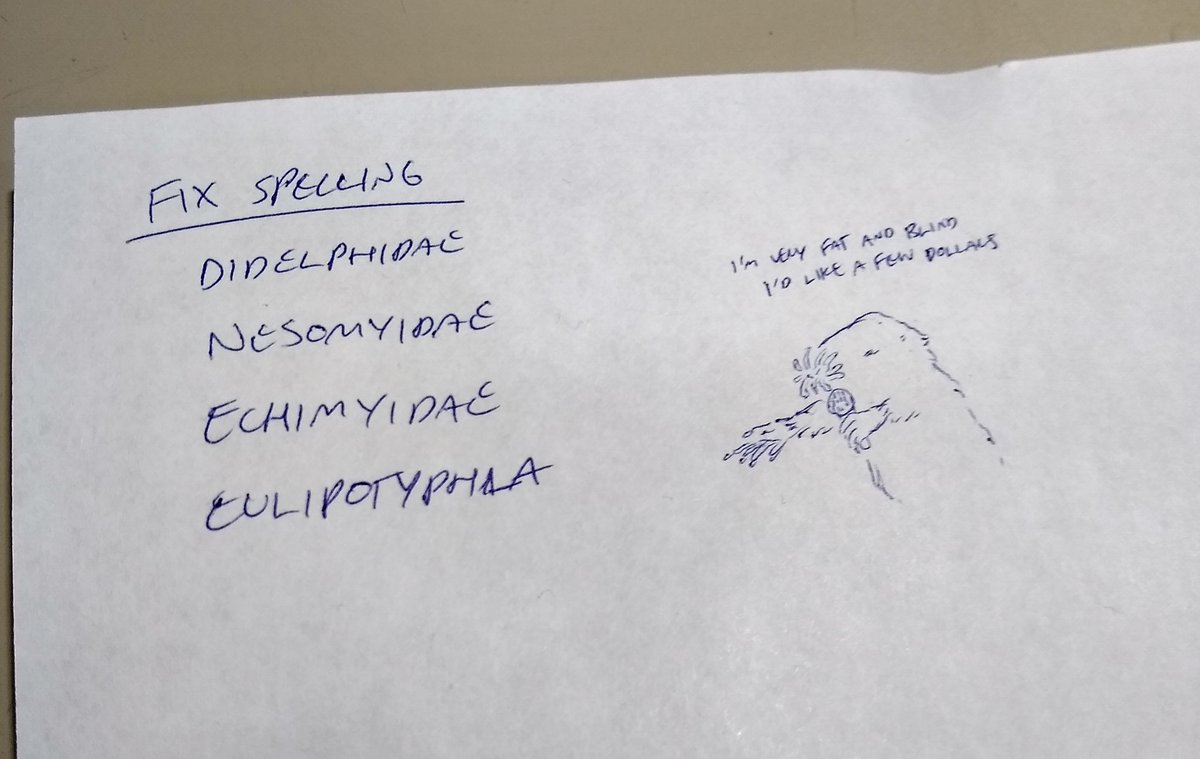 FIX SPELLING
DIDELPHIDAE
NESOMYIDAE
ECHIMYIDAE
EULIPOTYPHLA
I'M VERY FAT AND BLIND
I'D LIKE A FEW DOLLARS